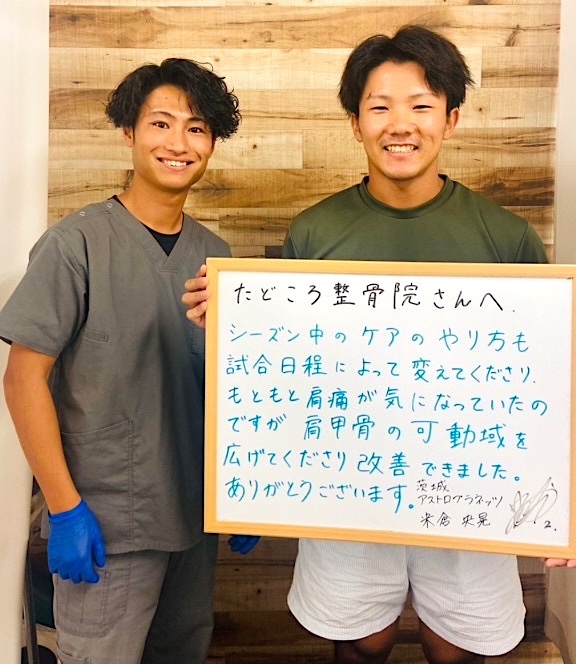 たどころ整骨院さんへ.
シーズン中のケアのやり方も
試合日程によって変えてくださり.
もともと肩痛が気になっていたの
ですが肩甲骨の可動域を
広げてくださり改善できました。
ありがとうございます。
茨城
アストロプラネッツ
米倉 央晃
2.